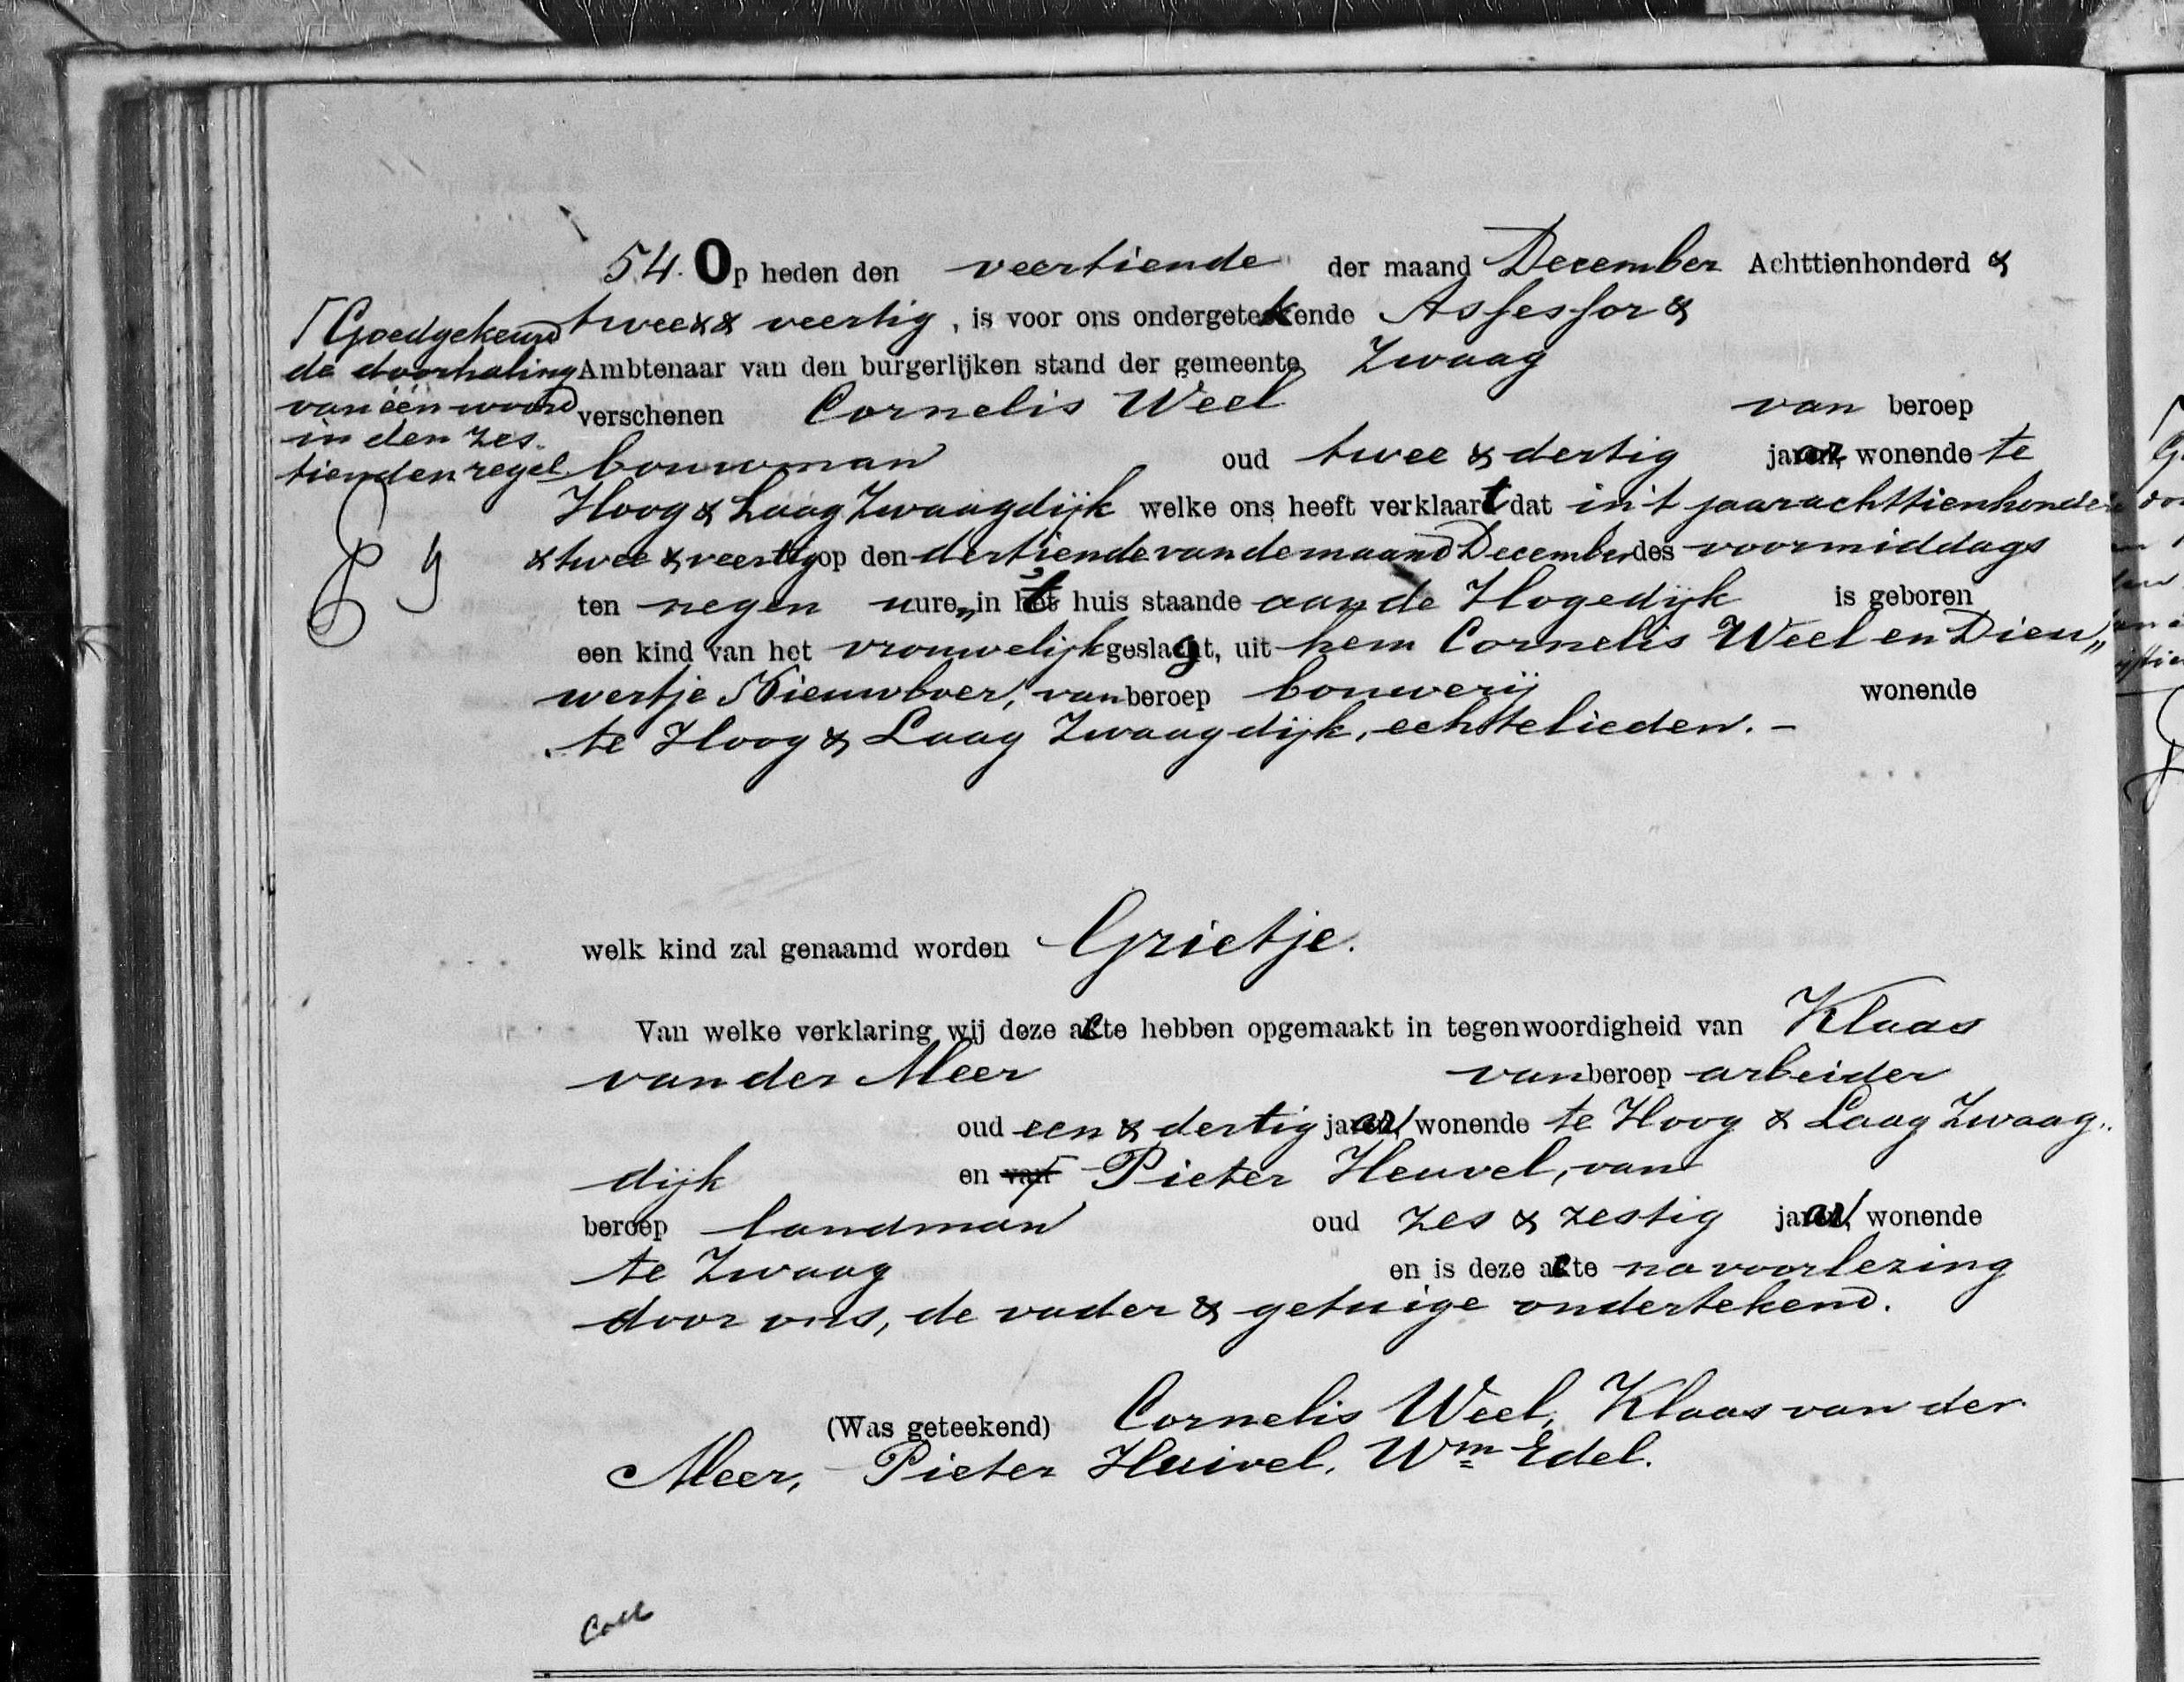 54. Op heden den veertiende der maand December Achttienhonderd &
twee & veertig, is voor ons ondergetekende Assessor &
Ambtenaar van den burgerlijken stand der gemeente Zwaag
verschenen Cornelis Weel van beroep
bouwman oud twee & dertig jaar, wonende te
Hoog & Laag Zwaagdijk welke ons heeft verklaart dat in 't jaar achttienhonderd
& twee & veertig op den dertiende van de maand December des voormiddags
ten negen ure, in 't huis staande aan de Hogedijk is geboren
een kind van het vrouwelijk geslagt, uit hem Cornelis Weel en Dieu„
wertje Nieuwboer, van beroep bouwerij wonende
te Hoog & Laag Zwaagdijk, echtelieden. -
Goedgekeurd
de doorhaling
van één woord
in den zes„
tienden regel
welk kind zal genaamd worden Grietje.
Van welke verklaring wij deze acte hebben opgemaakt in tegenwoordigheid van Klaas
van der Meer van beroep arbeider
oud een & dertig jaar, wonende te Hoog & Laag Zwaag„
dijk en van Pieter Heuvel, van
beroep landman oud zes & zestig jaar, wonende
te Zwaag en is deze acte na voorlezing
door ons, de vader & getuige ondertekend.
(Was geteekend) Cornelis Weel, Klaas van der
Meer, Pieter Huivel, Wm Edel.
Coll